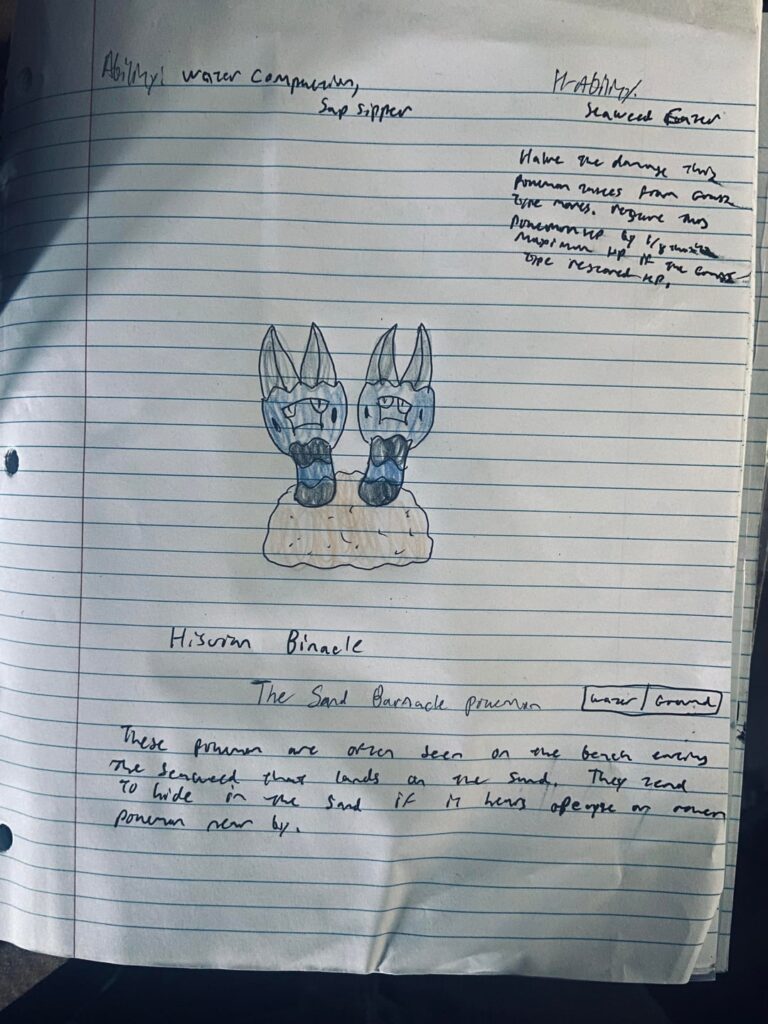 Ability: Water Compaction,
Sap Sipper
H-Ability:
Seaweed Eater
Halve the damage this
Pokemon takes from Grass
type moves. restore this
Pokemon HP by 1/8
Maximum HP if the Grass
type restored HP.
Hisuian Binacle
The Sand Barnacle pokemon
Water Ground
These pokemon are often seen on the beach eating
the seaweed that lands on the sand. They tend
To hide in the sand if it hears people or other
pokemon near by.